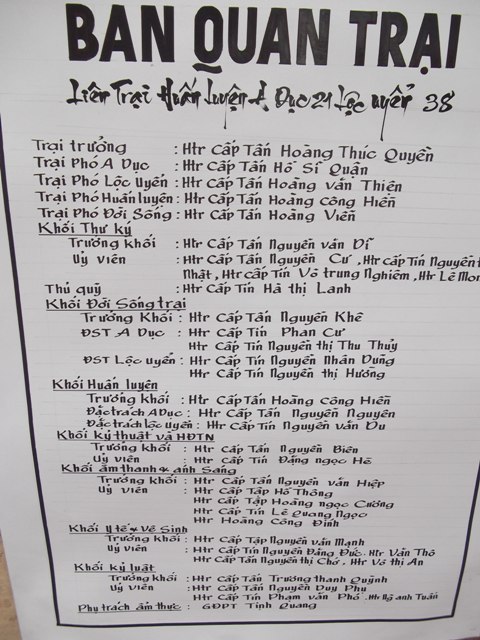 BAN QUAN TRẠI
Liên Trại Huấn Luyện A Dục 21 Lộc Uyển 38
Trại trưởng : Htr Cấp Tấn Hoàng Thúc Quyền
Trại Phó A Dục : Htr Cấp Tấn Hồ Sĩ Quận
Trại Phó Lộc Uyển : Htr Cấp Tấn Hoàng văn Thiện
Trại Phó Huấn luyện : Htr Cấp Tấn Hoàng Công Hiền
Trại Phó Đời Sống : Htr Cấp Tấn Hoàng Viễn
Khối Thư ký
Trưởng khối : Htr Cấp Tấn Nguyễn văn Dĩ
Uỷ viên : Htr Cấp Tấn Nguyễn Cư , Htr Cấp Tín Nguyễn
Nhật , Htr Cấp Tín Võ trung Nghiêm , Htr Lê
Thủ quỹ : Htr Cấp Tín Hà thị Lanh
Khối Đời Sống trại
Trưởng Khối : Htr Cấp Tấn Nguyễn Khê
ĐST A Dục : Htr Cấp Tín Phan Cư
Htr Cấp Tín Nguyễn thị Thu Thuỷ
ĐST Lộc Uyển : Htr Cấp Tín Nguyễn Nhân Dũng
Htr Cấp Tín Nguyễn thị Hương
Khối Huấn luyện
Trưởng khối : Htr Cấp Tấn Hoàng Công Hiền
Đặc trách A Dục : Htr Cấp Tấn Nguyễn Nguyên
Đặc trách lộc uyển : Htr Cấp Tín Nguyễn văn Du
Khối kỹ thuật và HĐTN
Trưởng khối : Htr Cấp Tấn Nguyễn Biên
Uỷ viên : Htr Cấp Tín Đặng ngọc Hè
Khối âm thanh & ánh Sáng
Trưởng khối : Htr Cấp Tấn Nguyễn văn Hiệp
Uỷ viên : Htr Cấp Tập Hồ Thông
Htr Cấp Tập Hoàng ngọc Cương
Htr Cấp Tín Lê Quang Ngọc
Htr Hoàng Công Đình
Khối Y tế & Vệ Sinh
Trưởng khối : Htr Cấp Tập Nguyễn văn Mạnh
Uỷ viên : Htr Cấp Tín Nguyễn Đăng Đức. Htr Văn Thô
Htr Cấp Tấn Nguyễn thị Chớ , Htr Võ thị An
Khối kỷ luật
Trưởng khối : Htr Cấp Tấn Trương thanh Quỳnh
Uỷ viên : Htr Cấp Tấn Nguyễn Duy Phu
Htr Cấp Tín Phạm văn Phó . Htr Ngô anh Tuấn
Phụ trách ẩm thực : GĐPT Tịnh Quang